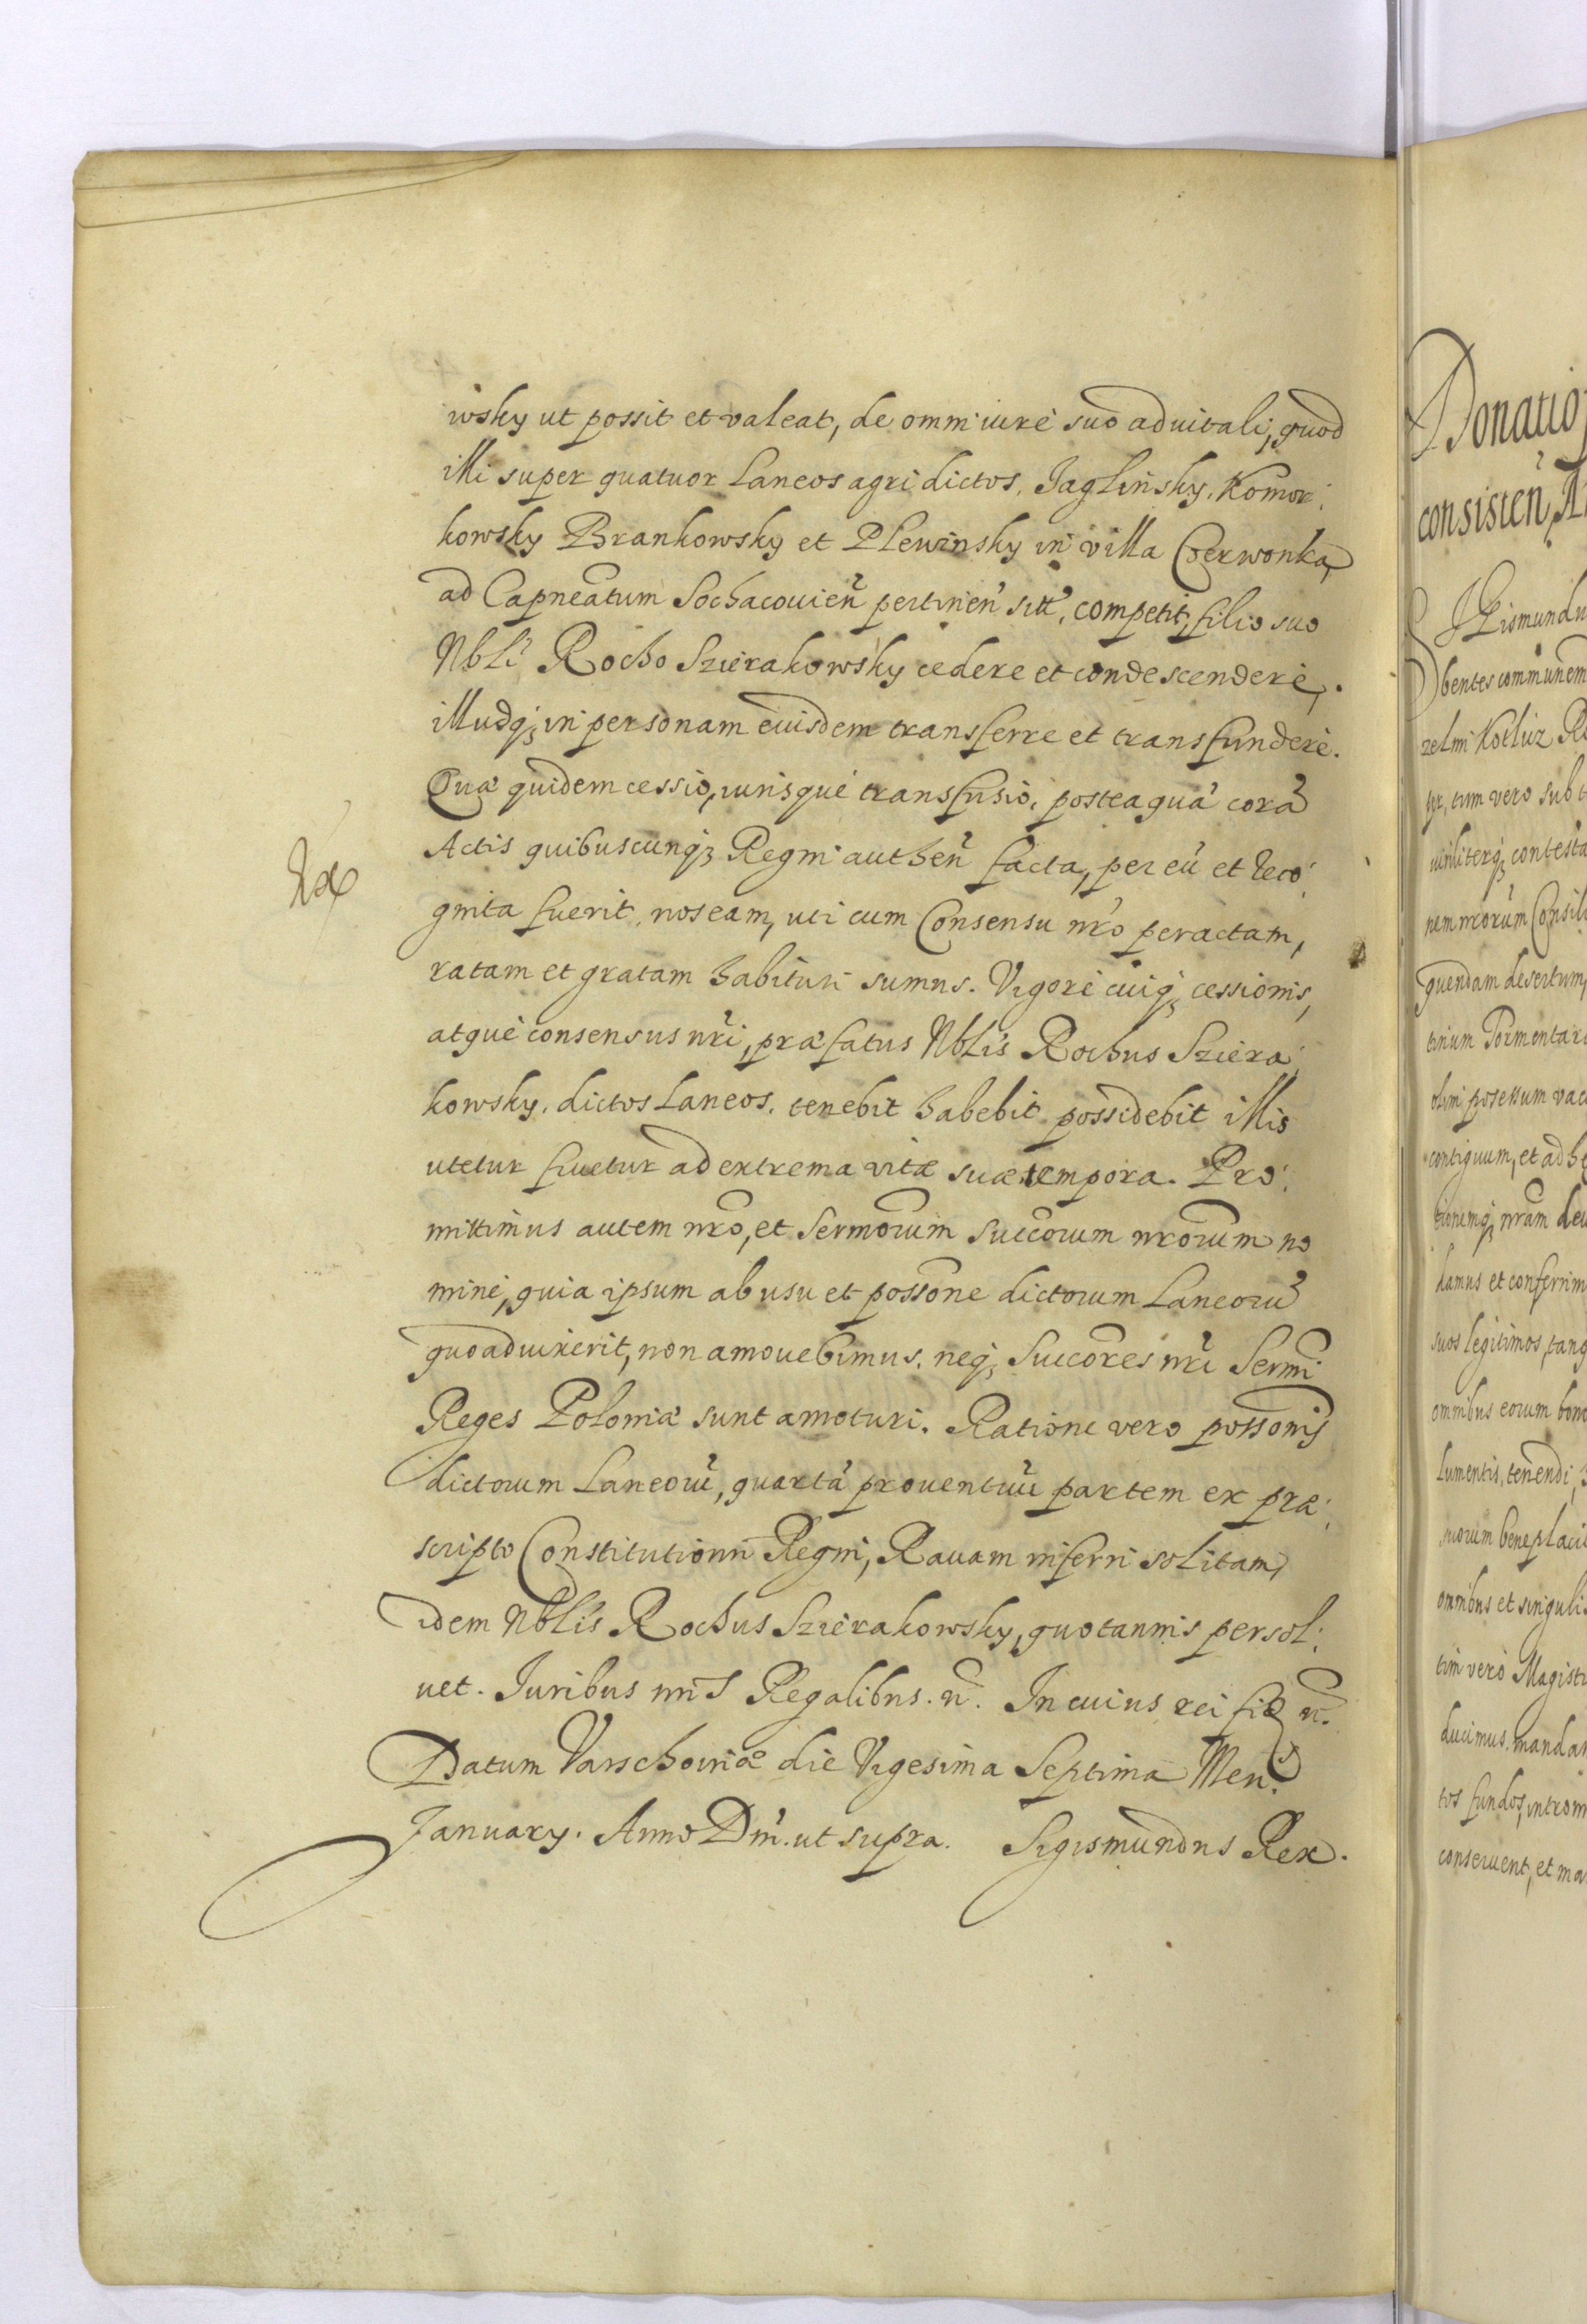 wsky ut possit et valeat, de omni iure suo aduitali, quod
illi super quatuor Laneos agri dictos, Jaglinsky, Komor:
kowsky Brankowsky et Plewinsky in villa Czerwonka,
ad Capneatum Sochacouien̄ pertinen̄ sitt, competit, filio suo
Nbli Rocho Szierakowsky cedere et condescendere,
illudq; in personam eiusdem transferre et transfundere.
Quæ quidem cessio, iurisque transfusio, posteaquā corā
Actis quibuscunq; Regni authen̄ facta, per eū et reco:
gnita fuerit, nos eam, uti cum Consensu nr̄o peractam,
ratam et gratam habituri sumus. Vigore cuiq; cessionis,
atque consensus nr̄i, præfatus Nblis Rochus Sziera:
kowsky, dictos Laneos, tenebit habebit possidebit illis
utetur fruetur ad extrema vitæ suæ tempora. Pro:
mittimus autem nr̄o, et Sermorum Succorum nr̄orum no
mine, quia ipsum ab usu et possone dictorum Laneorū
quoad uixerit, non amouebimus, neq; Succores nr̄i Sermi
Reges Poloniæ sunt amoturi. Ratione vero possonis
dictorum Laneorū, quartā prouentuū partem ex præ:
scripto Constitutionū Regni, Rauam inferri solitam,
idem Nblis Rochus Szierakowsky, quotannis persol:
uet. Iuribus nr̄is Regalibus. n̄. In cuius rei fid n̄.
Datum Varschouiæ die Vigesima Septima Men̄.
January. Anno Dm̄. ut supra. Sigismundus Rex.
Donatio
consisten
bentes communem
zelmi
tur, tum vero sub
contesta
nem nr̄orum Consili
quendam desertum,
tinum Tormentar
olim possessum vac
contiguum, et ad
nr̄am
damus et conferim
suos legitimos, tanq
omnibus eorum bon
lumentis, tenendi,
suorum beneplaci
omnibus et singuli
tim vero Magistr
ducimus, mandan
tos fundos, introm
conseruent, et ma